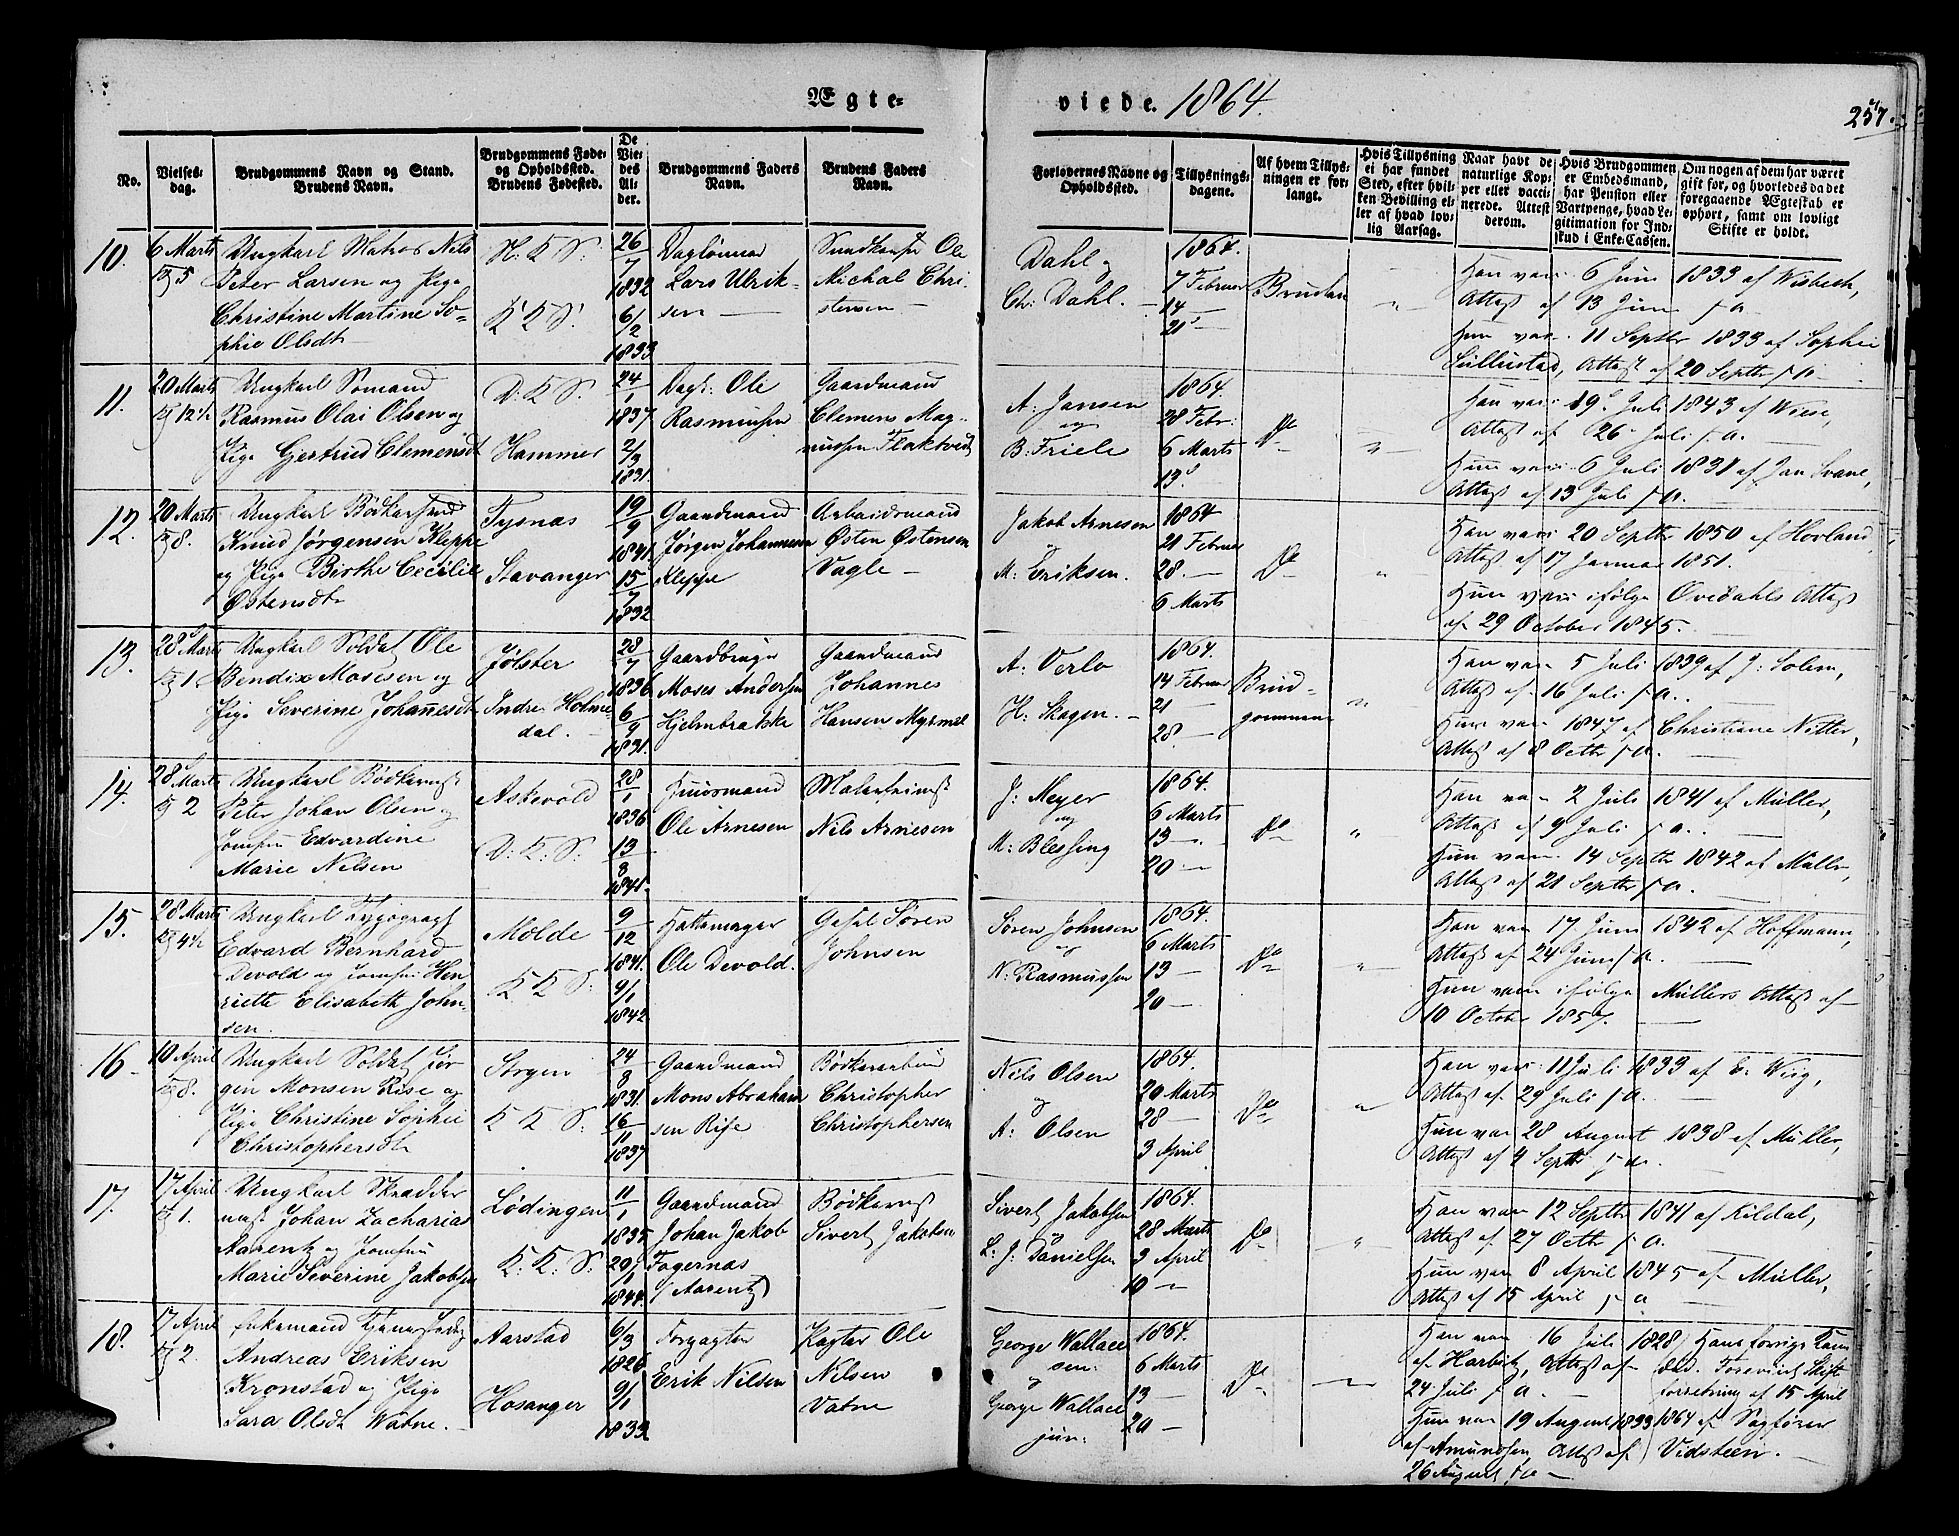 Ægte-
viede. 1864.
257.
No.
Vielses-
dag.
Brudgommens Navn og Stand.
Brudens Navn.
Brudgommens Føde-
og Opholdssted.
Brudens Fødested.
De
Vie-
des
Al-
der.
Brudgommens Faders
Navn.
Brudens Faders
Navn.
Forlovernes Navne og
Opholdssted.
Tillysnings-
dagene.
Af hvem Tillys-
ningen er for-
langt.
Hvis Tillysning
ei har fundet
Sted, efter hvil-
ken Bevilling el-
ler af hvad lov-
lig Aarsag.
Naar havt de
naturlige Kop-
per eller vacci-
nerede. Attest
derom.
Hvis Brudgommen
er Embedsmand,
har Pension eller
Vartpenge, hvad Le-
gitimation for Ind-
skud i Enke-Cassen.
Om nogen af dem har været
gift for, og hvorledes da det
foregaaende Ægteskab er
ophørt, samt om lovligt
Skifte er holdt.
10.
6 Marts
5
Ungkarl Matros Nils
Peter Larsen og Pige
Christine Martine So-
phie Olsdt
N. K. S.
K. K. S.
26/7
1832
6/2
1833
Daglønner
Lars Ulrik-
sen
Ole
Michal Chri-
stensen
Dahl
og
Chr. Dahl.
1864.
7 Februar
14 —
21 —
Bruden
Han var 6 Juni 1833 af Wisbech,
Attest af 13 Juni s. a.
Hun var 11 Septbr 1833 af Sophie
Attest af 20 Septbr s. a.
11.
20 Marts
12½
Ungkarl Sømand
Rasmus Olai Olsen og
Pige Gjertrud Clemensdt
D. K. S.
Hammer
24/1
1837
2/3
1831.
Dagl: Ole
Rasmussen
Gaardmand
Clemens Mag-
nussen Flaktvedt
A: Jansen
og
B. Friele
1864.
28 Febr:
6 Marts
13 —
Do
Han var 19 Juli 1843 af Wiese,
Attest af 26 Juli s. a.
Hun var 6 Juli 1831 af Jan Svane,
Attest af 13 Juli s. a.
12.
20 Marts
8.
Ungkarl Bødkersvend
Knud Jørgensen Kleppe
og Pige Birthe Cecilie
Østensdt
Tysnæs
Stavanger
19/9
1841.
15/7
1832
Gaardmand
Jørgen Johannesen
Kleppe
Arbeidsmand
Østen Østensen
Vagle —
Jakob Arnesen
M: Eriksen.
1864
21 Februar
28. —
6 Marts
Do
Han var 20 Septbr 1850 af Hovland,
Attest af 17 Januar 1851.
Hun var ifølge Øvredahls Attest
af 29 October 1845.
13.
28 Marts
1
Ungkarl Soldat Ole
Bendix Mosesen og
Pige Severine Johannesdt
Jølster
Indre Holme-
dal.
28/7
1836
6/9
1831.
Gaardbruger
Moses Andersen
Gaardmand
Johannes
Hansen Myrmel
A: Verlo
H: Skagen.
1864.
14 Februar
21 —
28. —
Brud-
gommen
Han var 5 Juli 1839 af J: Solem,
Attest af 16 Juli s. a.
Hun var 1847 af Christiane Nitter,
Attest af 8 Octbr s. a.
14.
28 Marts
2
Ungkarl Bødkersv.
Peter Johan Olsen og
Jomfru Edvardine
Marie Nielsen
Askevold
D. K. S.
28/1
1836
13/8
1841.
Huusmand
Ole Arnesen
Nils Arnesen
J: Meyer
og
M: Blessing
1864.
6 Marts
13 —
20 —
Do
Han var 2 Juli 1841 af Müller,
Attest af 9 Juli s. a.
Hun var 14 Septbr 1842 af Müller,
Attest af 21 Septbr s. a.
15.
28 Marts
4½
Ungkarl Typograf
Edvard Bernhard
Devold og Jomfru Hen-
riette Elisabeth John-
sen.
Molde
K. K. S.
9/12
1841.
9/1
1842.
Hattemager
Ole Devold.
Søren
Johnsen
Søren Johnsen
og
N: Rasmussen
1864.
6 Marts
13 —
20 —
Do
Han var 17 Juni 1842 af Hoffmann,
Attest af 24 Juni s. a.
Hun var ifølge Müllers Attest af
10 October 1857.
16
10 April
8.
Ungkarl Soldat Jør-
gen Monsen Rise og
Pige Christine Sophie
Christophersdt
Stryen
K. K. S.
24/8
1831.
16/11
1837
Gaardmand
Mons Abraham-
sen Rise
Bødkersvend
Christopher
Christophersen
Nils Olsen
og
A: Olsen
1864.
20 Marts
28 —
3 April
Do
Han var 11 Juli 1833 af E: Wiig,
Attest af 29 Juli s. a.
Hun var 28 August 1838 af Müller,
Attest af 4 Septbr s. a.
17.
17 April
1.
Ungkarl Skrædder
Johan Zacharias
Aarentz og Jomfru
Marie Severine Jakobsen
Lødingen
K. K. S.
11/1
1835
29/1
1844.
Gaardmand
Johan Jakob
Fagernæs
(Aarentz)
Bødkersv.
Sivert Jakobsen
Sivert Jakobsen
og
L: J: Danielsen
1864
28 Marts
3 April
10 —
Do
Han var 12 Septbr 1841 af Kildal,
Attest af 27 Octbr s. a.
Hun var 8 April 1845 af Müller,
Attest af 15 April s. a.
18.
17 April
2.
Enkemand
Andreas Eriksen
Kronstad og Pige
Sara Olsdt Watne.
Aarstad
Hosanger
6/3
1826
9/1
1833
Forpagter
Erik Nilsen
Ole
Nilsen
Vatne
George Wallace
sen:
og
George Wallace
jun:
1864.
6 Marts
13 —
20 —
Do
Han var 16 Juli 1828
af Harbitz, Attest af
24 Juli s. a.
Hun var 19 August 1833
af Amundsen, Attest af
26 August s. a.
Hans forrige Kone
død. Foreviist Skifte-
forretning af 15 April
1864 af Sagfører
Vidsteen.